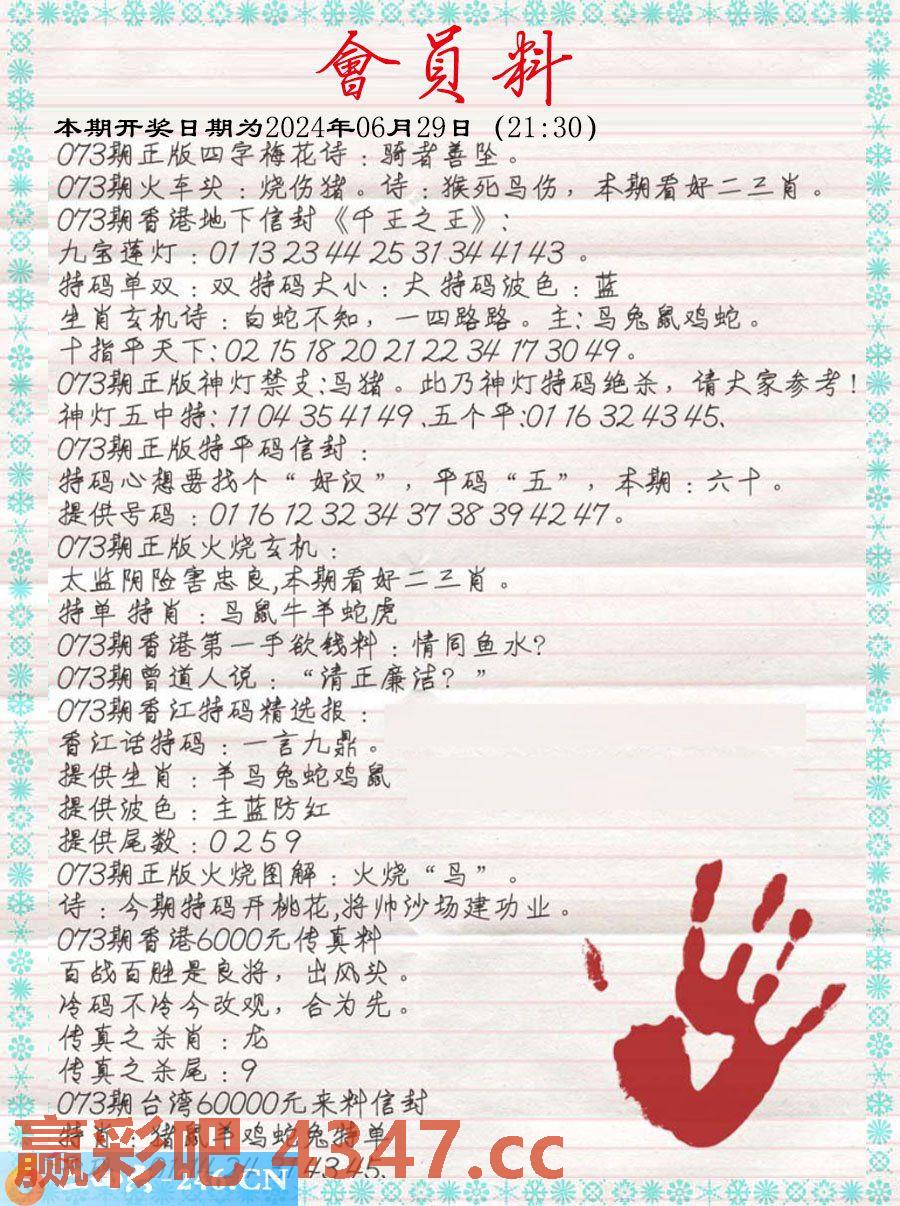 會員料
本期开奖日期为2024年06月29日（21:30）
073期正版四字梅花诗：骑者善坠。
073期火车头：烧伤猪。诗：猴死鸟伤，本期看好二三肖。
073期香港地下信封《千王之王》:
九宝莲灯：01 13 23 44 25 31 34 41 43 。
特码单双：双 特码大小：大 特码波色：蓝
生肖玄机诗：白蛇不知，一四路路。主:鸟兔鼠鸡蛇。
十指平天下:02 15 18 20 21 22 34 17 30 49。
073期正版神灯禁支:鸟猪。此乃神灯特码绝杀，请大家参考！
神灯五中特: 11 04 35 41 49 .五个平:01 16 32 43 45.
073期正版特平码信封：
特码心想要找个“好汉”，平码“五”，本期：六十。
提供号码：01 16 12 32 34 37 38 39 42 47。
073期正版火烧玄机：
太监阴险害忠良,本期看好二三肖。
特单 特肖：鸟鼠牛羊蛇虎
073期香港第一手欲钱料：情同鱼水?
073期曾道人说：“请正廉洁？”
073期香江特码精选报：
香江话特码：一言九鼎。
提供生肖：羊鸟兔蛇鸡鼠
提供波色：主蓝防红
提供尾数：0 2 5 9
073期正版火烧图解：火烧“鸟”。
诗：今期特码开桃花,将帅沙场建功业。
073期香港6000元传真料
百战百胜是良将，出风头。
冷码不冷今改观，合为先。
传真之杀肖：龙
传真之杀尾：9
073期台湾60000元来料信封
特肖：猪鼠羊鸡蛇兔特单
赢彩吧 4347.cc
43 45.
246.CN